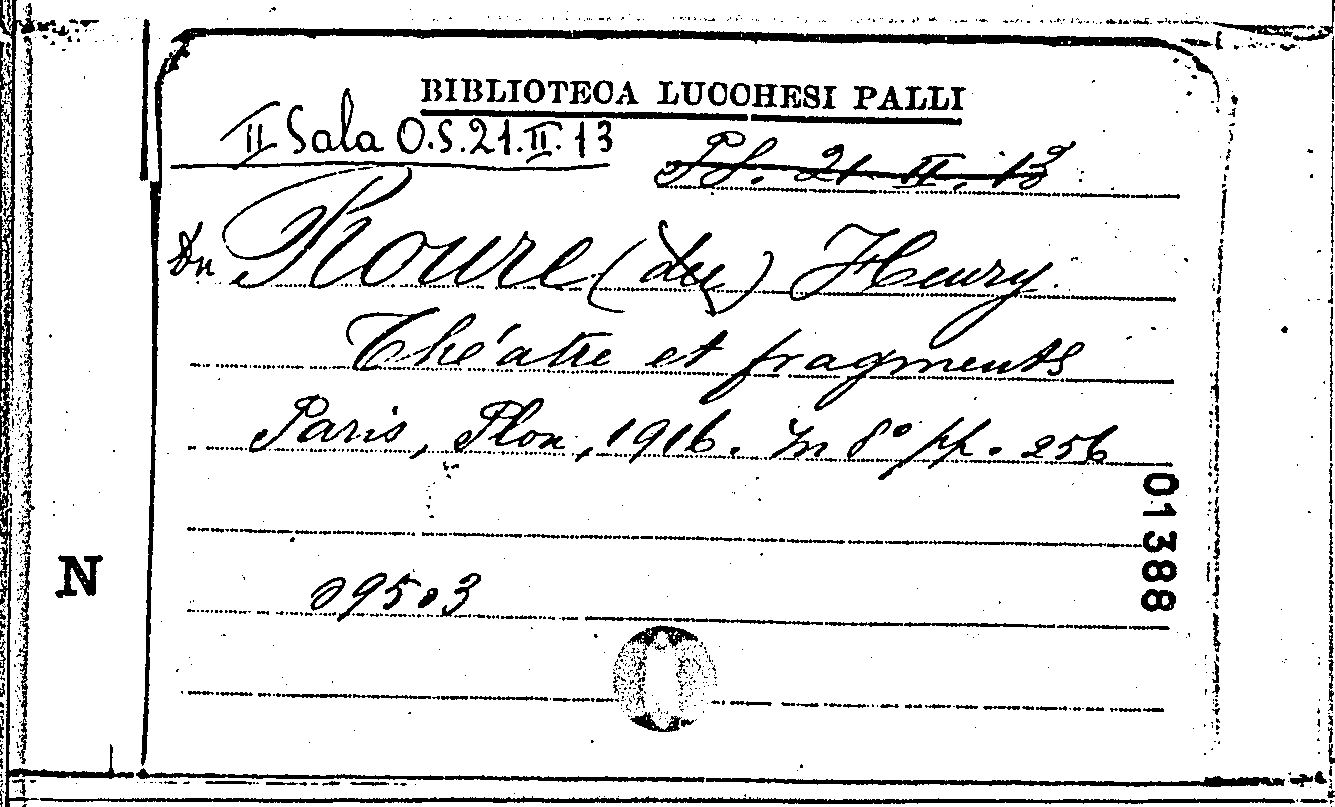 BIBLIOTECA LUCCHESI PALLI
II Sala O.S.21.II.13
21 II. 13
Du Roure (du) Henry.
Théatre et fragments
Paris, Plon, 1916. In 8° pp. 256
01388
N
09503